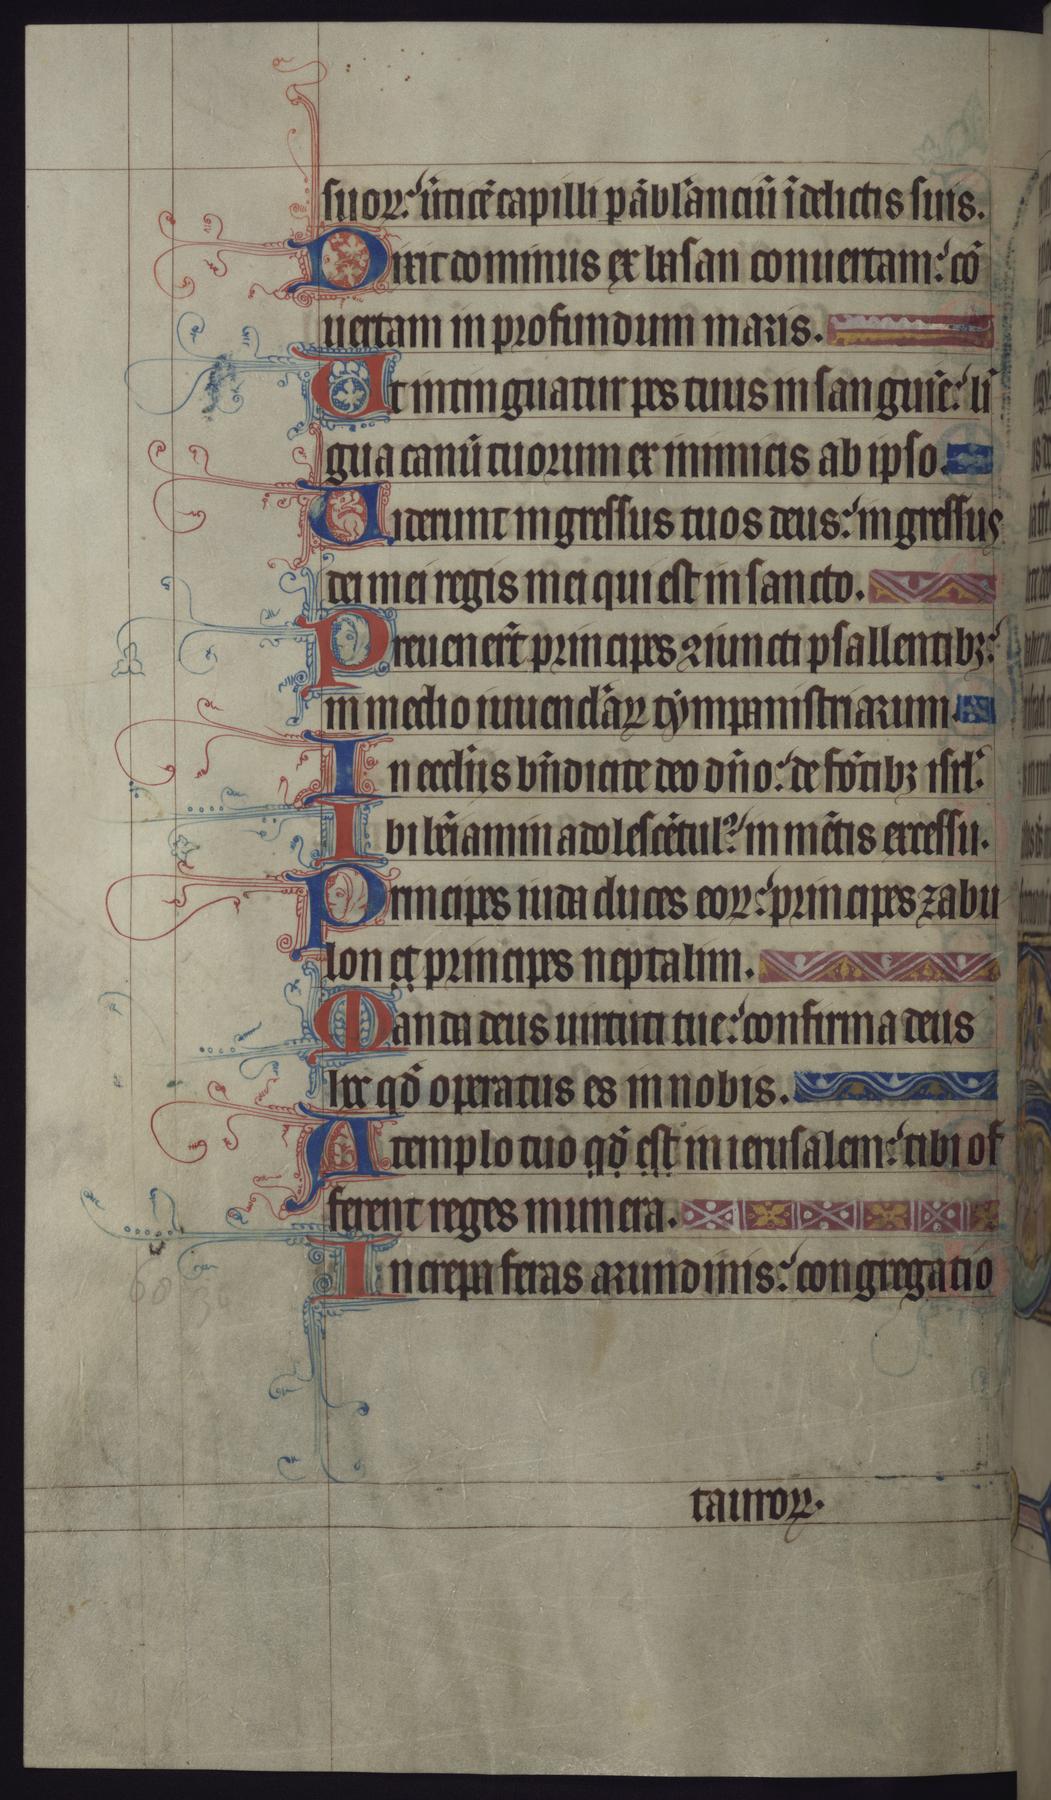 suoꝝ: ūticē capilli ꝑābl̄anciū ī delictis suis.
Dixit dominus ex basan conuertam: cō
uertam in profundum maris.
Ut intinguatur pes tuus in sanguīe: lī
gua canū tuorum ex inimicis ab ipso.
Uiderunt ingressus tuos deus: ingressus
dei mei regis mei qui est in sancto.
Preuenerūt principes ꝯiuncti psallentibꝫ:
in medio iuuenclāꝝ tympanistriarum.
In ecclīis bn̄dicite deo dn̄o: de fōtibꝫ isrl̄:
Ibi bēiamin adolescētulꝰ: in mētis excessu.
Principes iuda duces eoꝝ: principes zabu
lon et principes neptalim.
Manda deus uirtuti tue: confirma deus
hoc qd̄ operatus es in nobis.
A templo tuo qd̄ est in ierusalem: tibi of
ferent reges munera.
Increpa feras arundinis: congregatio
tauroꝝ.